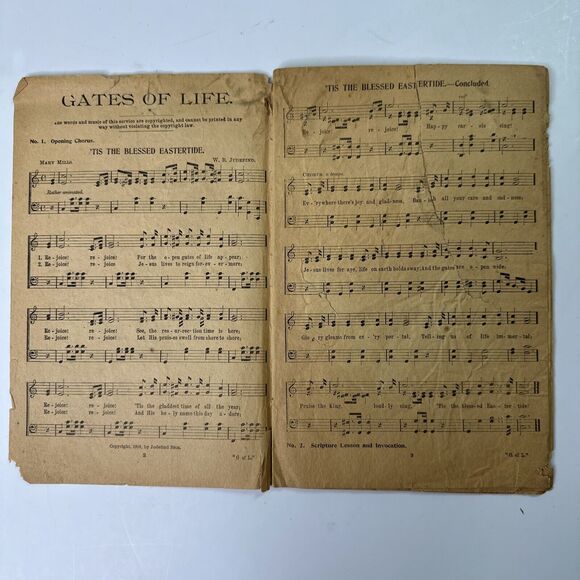 GATES OF LIFE.
The words and music of this service are copyrighted, and cannot be printed in any
way without violating the copyright law.
No. 1. Opening Chorus.
'TIS THE BLESSED EASTERTIDE.
MARY MILLS. W. B. JUDEFIND.
Rather animated.
1. Re-joice! re-joice! For the o-pen gates of life ap-pear;
2. Re-joice! re-joice! Je-sus lives to reign for-ev-er-more;
Re-joice! re-joice! See, the res-ur-rec-tion time is here;
Re-joice! re-joice! Let His praises swell from shore to shore;
Re-joice! re-joice! 'Tis the gladdest time of all the year;
Re-joice! re-joice! And His ho-ly name this day a-dore;
Copyright, by Judefind Bros.
2 "G of L."
'TIS THE BLESSED EASTERTIDE.—Concluded.
Re-joice! re-joice! Hap-py car-ols sing!
CHORUS. a tempo.
Ev-'rywhere there's joy and gladness, Ban-ish all your care and sadness;
Jesus lives for aye, life on earth holds sway; And the gates are o-pen wide;
Glo-ry gleams from ev-'ry por-tal, Tell-ing us of life im-mor-tal;
Praise the King, loud-ly sing, 'Tis the bless-ed Eas-ter-tide!
No. 1. Scripture Lesson and Invocation.
3 "G of L."